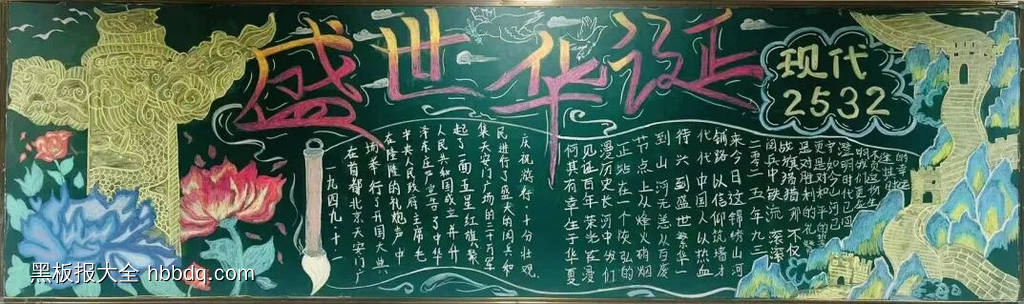 盛世华诞
现代
2532
一九四九十一
在首都北京天安门广
场举行了开国大典
在隆隆的礼炮声中
中央人民政府主席毛
泽东庄严宣告了中华
人民共和国成立并升
起了一面五星红旗聚
集天安门广场的三十万军
民进行了盛大的阅兵和
庆祝游行十分壮观
何其有幸生于华夏
见证百年荣光在漫
漫历史长河中我们
正站在一个恢弘的
节点上从烽火硝烟
到山河无恙从百废
待兴到盛世繁华一
代代中国人以热血
铺路以信仰筑墙才
来今日这锦绣山河
二零二五年九三
阅兵中铁流滚滚
战旗猎猎那不仅
是对胜利的礼赞
更是对和平的
如今山河已
澄明时代已
黑板报大全 hbbdq.com